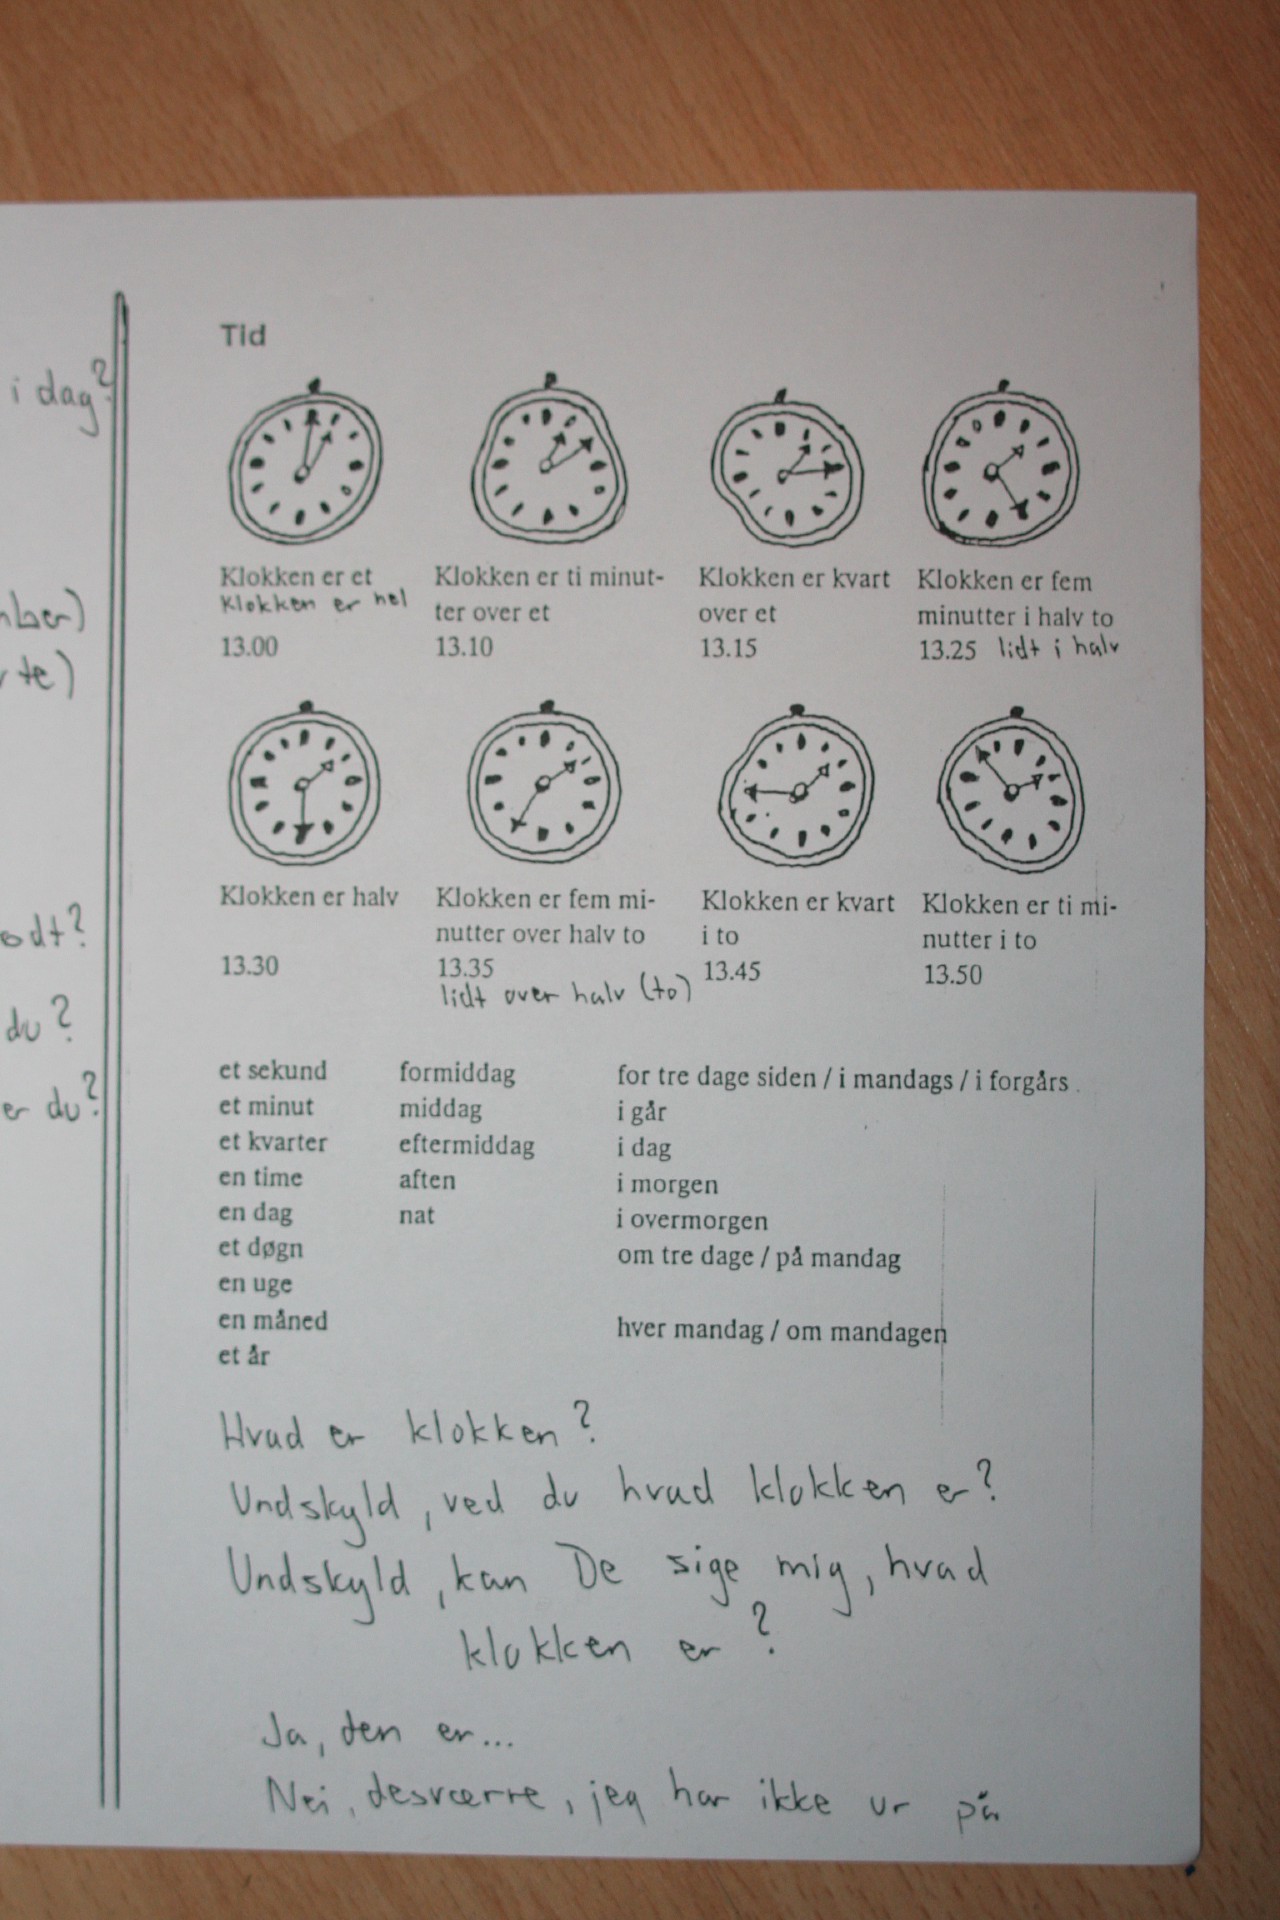 i dag?
du?
er du?
Tid
Klokken er et
Klokken er hel
13.00
Klokken er ti minut-
ter over et
13.10
Klokken er kvart
over et
13.15
Klokken er fem
minutter i halv to
13.25 lidt i halv
Klokken er halv
13.30
Klokken er fem mi-
nutter over halv to
13.35
lidt over halv (to)
Klokken er kvart
i to
13.45
Klokken er ti mi-
nutter i to
13.50
et sekund
et minut
et kvarter
en time
en dag
et døgn
en uge
en måned
et år
formiddag
middag
eftermiddag
aften
nat
for tre dage siden / i mandags / i forgårs
i går
i dag
i morgen
i overmorgen
om tre dage / på mandag
hver mandag / om mandagen
Hvad er klokken?
Undskyld, ved du hvad klokken er?
Undskyld, kan De sige mig, hvad
klokken er?
Ja, den er...
Nei, desværre, jeg har ikke ur på